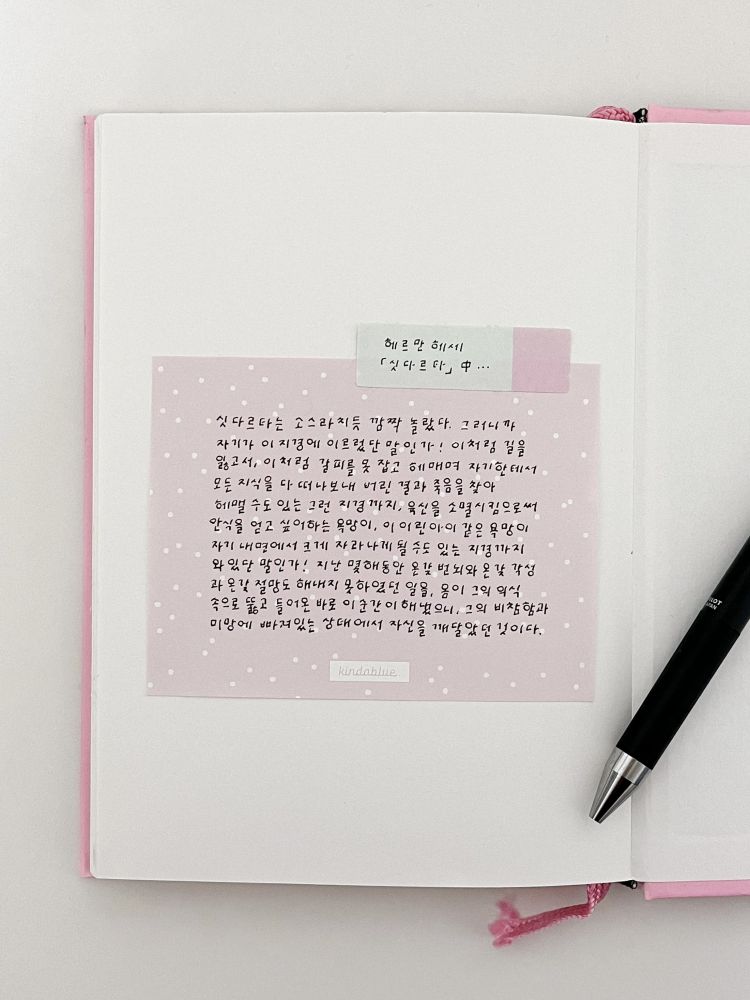 헤르만 헤세
「싯다르타」中...
싯다르타는 소스라치듯 깜짝 놀랐다. 그러니까
자기가 이 지경에 이르렀단 말인가! 이처럼 길을
잃고서, 이처럼 갈피를 못 잡고 헤매며 자기한테서
모든 지식을 다 떠나보내 버린 결과 죽음을 찾아
헤맬 수도 있는 그런 지경까지, 육신을 소멸시킴으로써
안식을 얻고 싶어하는 욕망이, 이 어린아이 같은 욕망이
자기 내면에서 크게 자라나게 될 수도 있는 지경까지
와 있단 말인가! 지난 몇해동안 온갖 번뇌와 온갖 각성
과 온갖 절망도 해내지 못하였던 일을, 옴이 그의 의식
속으로 뚫고 들어온 바로 이 순간이 해냈으니, 그의 비참함과
미망에 빠져있는 상태에서 자신을 깨달았던 것이다.
kindablue
PILOT
JAPAN